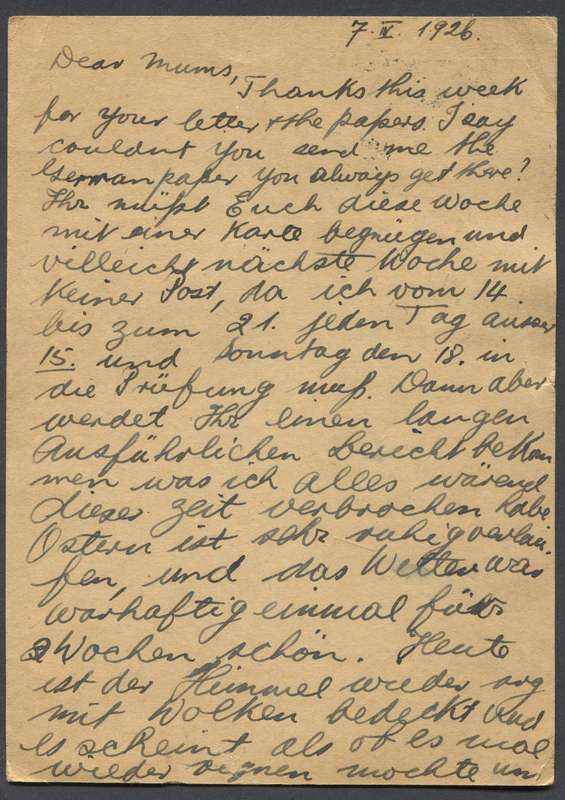 7. IV. 1926.
Dear Mums,
Thanks this week
for your letter & the papers. I say
couldnt you send me the
German paper you always get there?
Ihr müßt Euch diese Woche
mit einer Karte begnügen und
villeicht nächste Woche mit
keiner Post, da ich vom 14.
bis zum 21. jeden Tag ausser
15. und Sonntag den 18. in
die Prüfung muß. Dann aber
werdet Ihr einen langen
Ausführlichen Bericht bekom
men was ich alles wärend
dieser Zeit verbrochen habe.
Ostern ist sehr ruhig verlau-
fen, und das Wetter war
warhaftig einmal für
2 Wochen schön. Heute
ist der Himmel wieder arg
mit Wolken bedeckt und
es scheint als ob es mal
wieder regnen mochte um